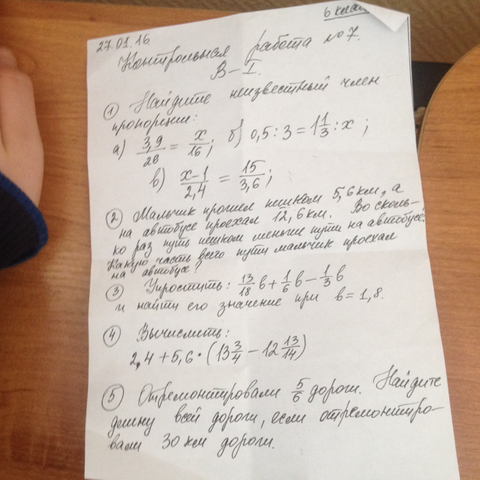 6 класс
27.01.16.
Контрольная работа №7.
В–I.
① Найдите неизвестный член
пропорции:
а) 3,9/28 = x/16; б) 0,5 : 3 = 1 1/3 : x;
в) x–1/2,4 = 15/3,6;
② Мальчик прошел пешком 5,6 км, а
на автобусе проехал 12,6 км. Во сколь-
ко раз путь пешком меньше пути на автобусе?
Какую часть всего пути мальчик проехал
на автобусе?
③ Упростить: 13/18 b + 1/6 b – 1/3 b
и найти его значение при b = 1,8.
④ Вычислить:
2,4 + 5,6 · (13 3/4 – 12 13/14)
⑤ Отремонтировали 5/6 дороги. Найдите
длину всей дороги, если отремонтиро-
вали 30 км дороги.